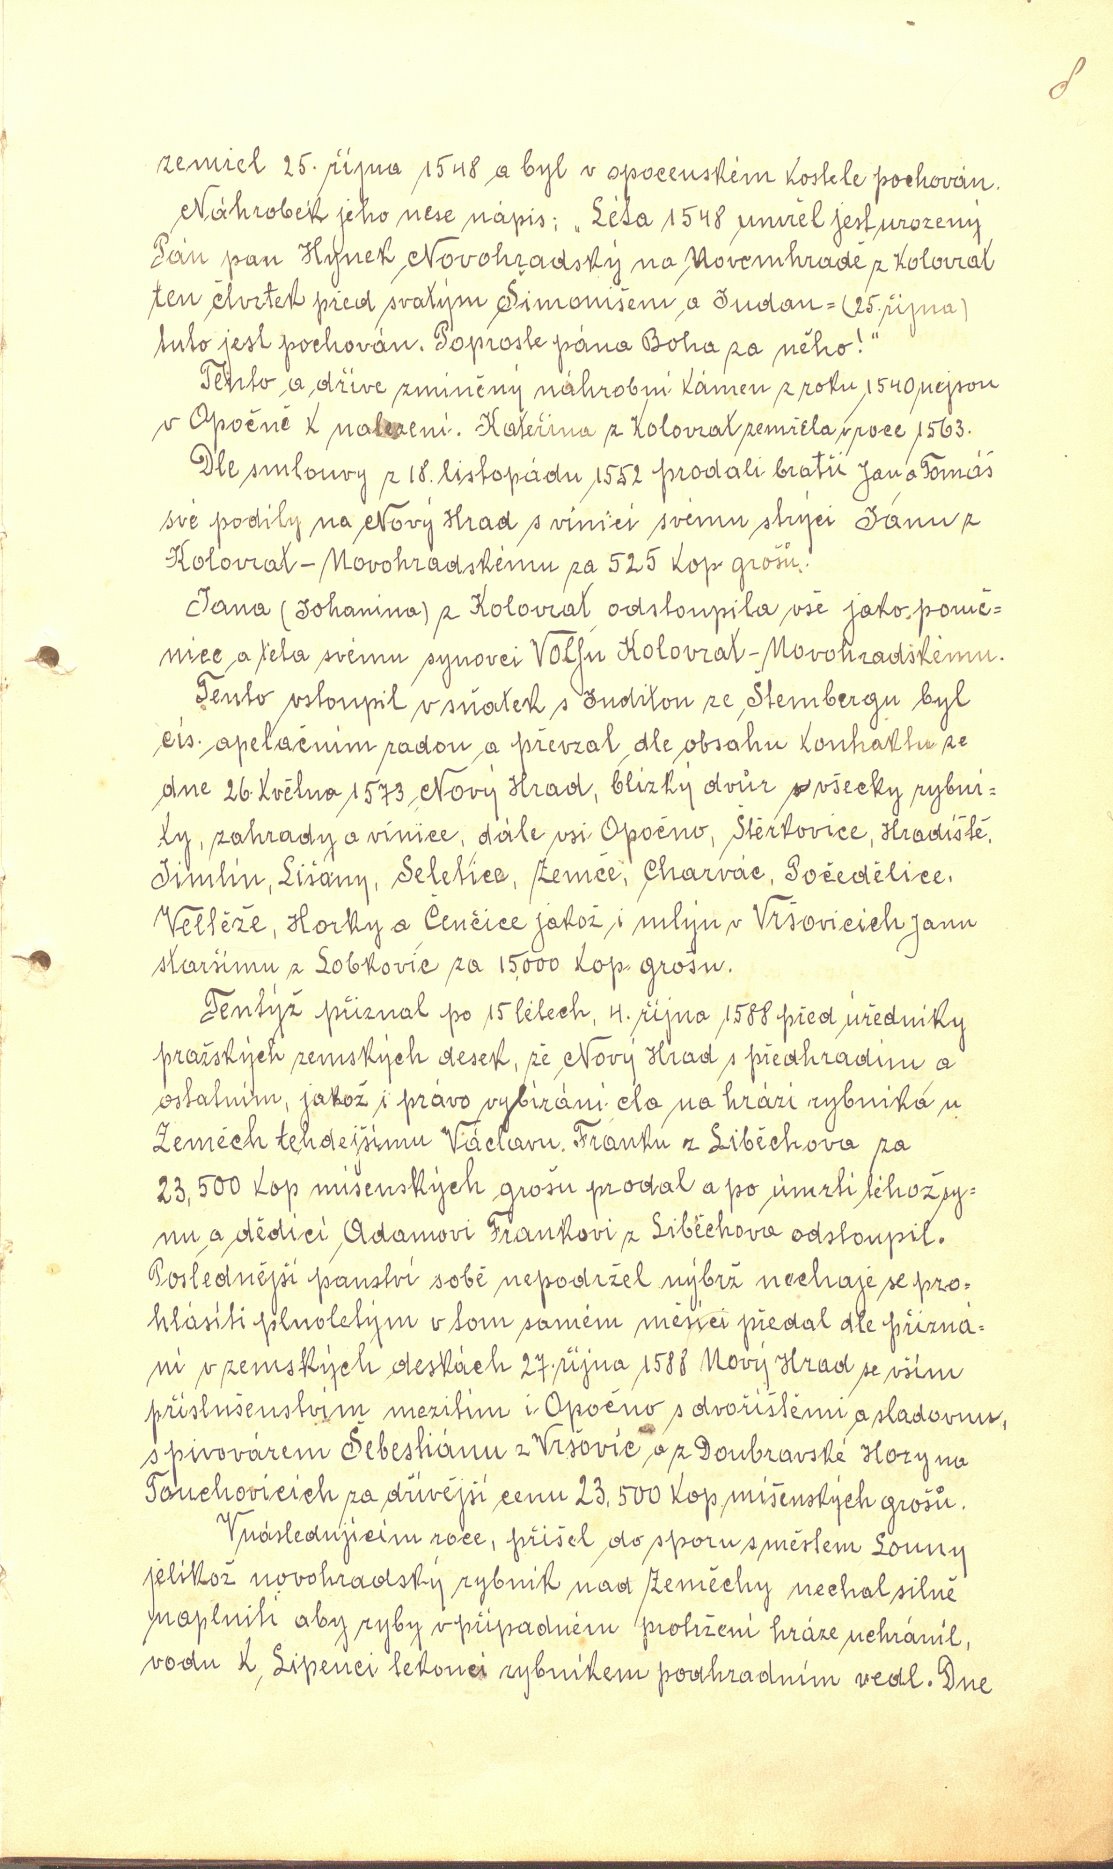 8
zemřel 25. října 1548 a byl v opočenském kostele pochován.
Náhrobek jeho nese nápis: „Léta 1548 umřel jest urozený
Pán pan Hynek Novohradský na Novemhradě z Kolovrat
ten čtvrtek před svatým Šimonišem a Judau=(25. října)
tuto jest pochován. Poproste pána Boha za něho!"
Tento a dříve zmíněný náhrobní kámen z roku 1540 nejsou
v Opočně k nalezení. Kateřina z Kolovrat zemřela v roce 1563.
Dle smlouvy z 18. listopádu 1552 prodali bratři Jan a Tomáš
své podíly na Nový Hrad s vinicí svému strýci Janu z
Kolovrat – Novohradskému za 525 kop grošů.
Jana (Johanina) z Kolovrat odstoupila vše jako poruč=
nice a teta svému synovci Volfu Kolovrat – Novohradskému.
Tento vstoupil v sňatek s Juditou ze Štembergu byl
cís. apelačním radou a převzal dle obsahu kontraktu ze
dne 26 května 1573 Nový Hrad, blízký dvůr všecky rybní=
ky, zahrady a vinice, dále vsi Opočno, Štěrkovice, Hradiště,
Jimlín, Lišany, Seletice, Zemče, Charvác, Počedělice.
Veltěže, Horky a Čenčice jakož i mlýn v Vršovicích Janu
staršímu z Lobkovic za 15,000 kop grošu.
Tentýž přiznal po 15 létech, 4. října 1588 před úředníky
pražských zemských desek, že Nový Hrad s předhradím a
ostatním, jakož i právo vybíráni cla na hrázi rybníka u
Zeměch tehdejšímu Václavu Franku z Liběchova za
23,500 kop míšenských grošu prodal a po úmrtí téhož sy=
nu a dědici Adamovi Frankovi z Liběchova odstoupil.
Poslednější panství sobě nepodržel nýbrž nechaje se pro=
hlásiti plnoletým v tom samém měsíci předal dle přizná=
ní v zemských deskách 27. října 1588 Nový Hrad se vším
příslušenstvím mezitím i Opočno s dvořištěmi a sladovnu,
s pivovárem Šebestiánu z Vršovic a z Doubravské Hory na
Touchovicích za dřívější cenu 23,500 kop míšenských grošů.
V následujícím roce, přišel do sporu s městem Louny
jelikož novohradský rybník nad Zeměchy nechal silně
naplniti aby ryby v případném protržení hráze uchránil,
vodu k Lipenci tekoucí rybníkem podhradním vedl. Dne